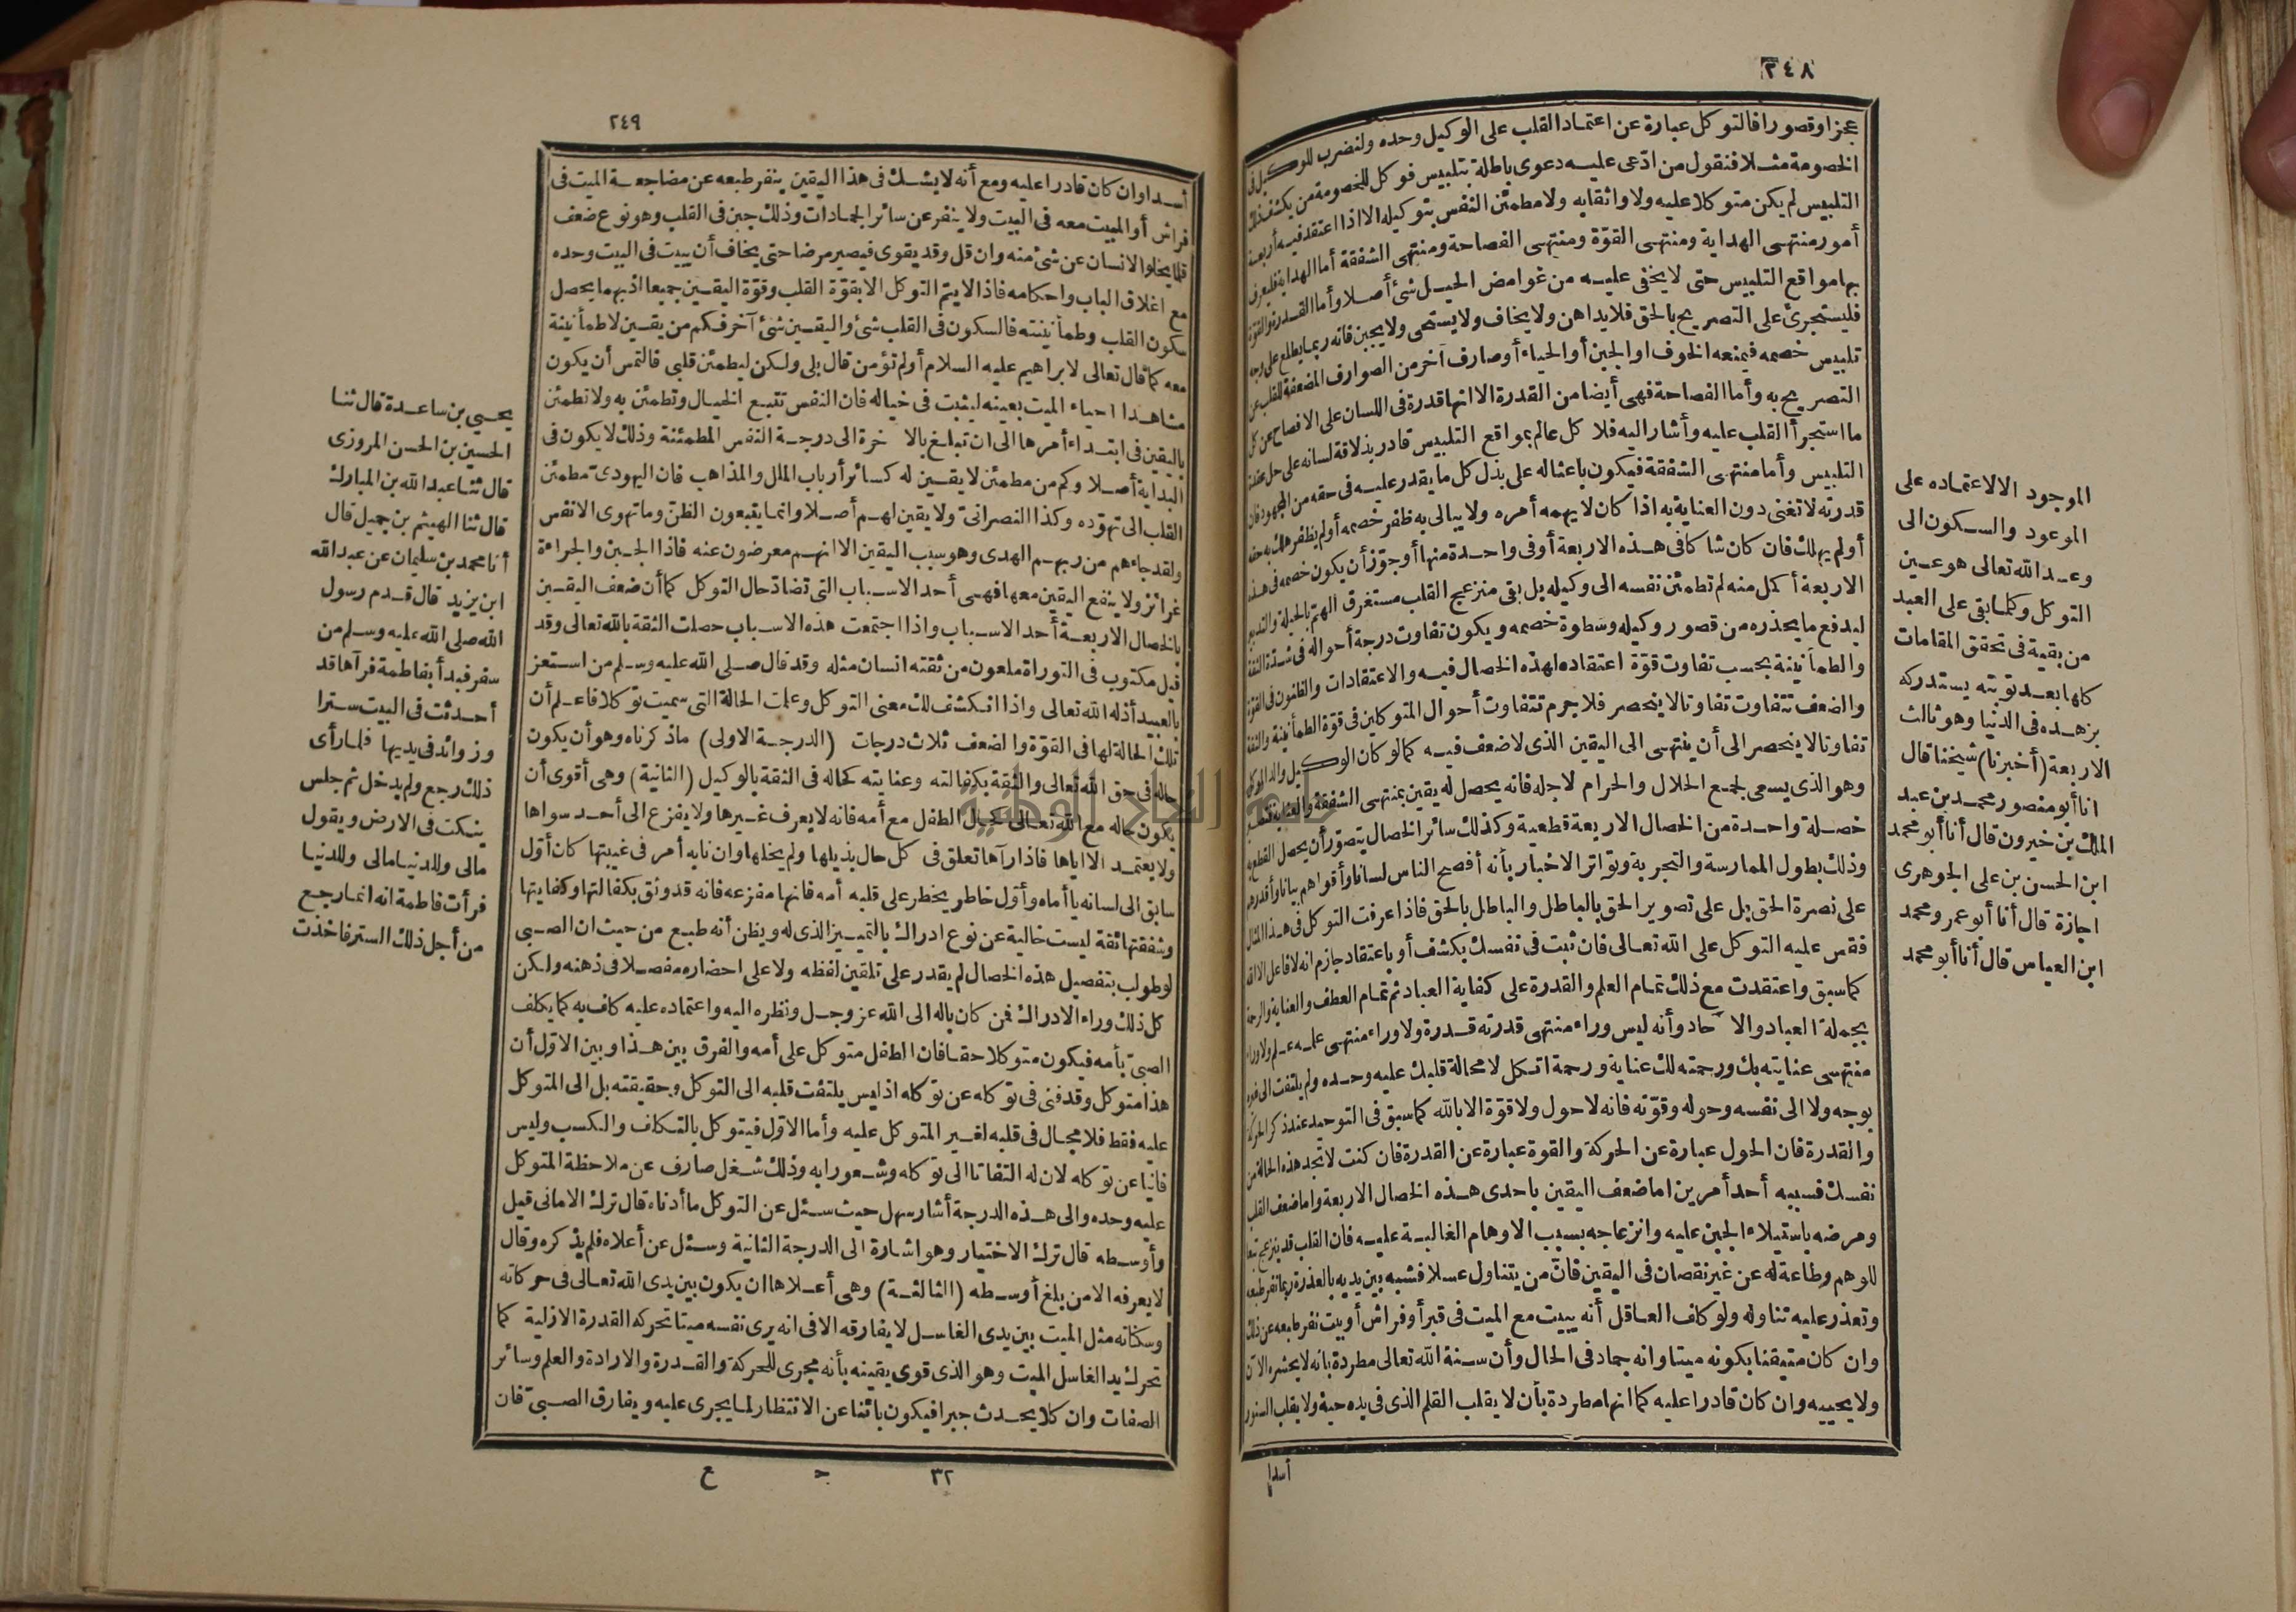 ٢٤٨
عجزا وقصورا فالتوكل عبارة عن اعتماد القلب على الوكيل وحده ولنضرب للوكيل فى
الخصومة مثلا فنقول من ادّعى عليه دعوى باطلة بتلبيس فوكل للخصومة من يكشف ذلك
التلبيس لم يكن متوكلا عليه ولا واثقا به ولا مطمئن النفس بتوكيله الا اذا اعتقد فيه أربعة
أمور منتهى الهداية ومنتهى القوّة ومنتهى الفصاحة ومنتهى الشفقة أما الهداية فليعرف
بها مواقع التلبيس حتى لا يخفى عليه من غوامض الحيل شئ أصلا وأما القدرة والقوّة
فليستجرئ على التصريح بالحق فلا يداهن ولا يخاف ولا يستحى ولا يجبن فانه ربما يطلع على وجه
تلبيس خصمه فيمنعه الخوف او الجبن أو الحياء أو صارف آخر من الصوارف المضعفة للقلب عن
التصريح به وأما الفصاحة فهى أيضا من القدرة الا انها قدرة فى اللسان على الافصاح عن كل
ما استجرأ القلب عليه وأشار اليه فلا كل عالم بمواقع التلبيس قادر بذلاقة لسانه على حل عقدة
التلبيس وأما منتهى الشفقة فيكون باعثا له على بذل كل ما يقدر عليه فى حقه من المجهود فان
قدرته لا تغنى دون العناية به اذا كان لا يهمه أمره ولا يبالى به ظفر خصمه أو لم يظفر هلك به حقه
أو لم يهلك فان كان شاكا فى هذه الاربعة أو فى واحدة منها أو جوّز أن يكون خصمه فى هذه
الاربعة أكمل منه لم تطمئن نفسه الى وكيله بل بقى منزعج القلب مستغرق الهم بالحيلة والتدبير
ليدفع ما يحذره من قصور وكيله وسطوة خصمه ويكون تفاوت درجة أحواله فى شدّة الثقة
والطمأنينة بحسب تفاوت قوّة اعتقاده لهذه الخصال فيه والاعتقادات والظنون فى القوّة
والضعف تتفاوت تفاوتا لا ينحصر فلا جرم تتفاوت أحوال المتوكلين فى قوّة الطمأنينة والثقة
تفاوتا لا ينحصر الى أن ينتهى الى اليقين الذى لا ضعف فيه كما لو كان الوكيل والد الموكل
وهو الذى يسعى لجمع الحلال والحرام لاجله فانه يحصل له يقين بمنتهى الشفقة والعناية فتصير
خصلة واحدة من الخصال الاربعة قطعية وكذلك سائر الخصال يتصوّر أن يحصل القطع به
وذلك بطول الممارسة والتجربة وتواتر الاخبار بأنه أفصح الناس لسانا وأقواهم بيانا وأقدرهم
على نصرة الحق بل على تصوير الحق بالباطل والباطل بالحق فاذا عرفت التوكل فى هذا المثال
فقس عليه التوكل على الله تعالى فان ثبت فى نفسك بكشف أو باعتقاد جازم انه لا فاعل الا الله
كما سبق واعتقدت مع ذلك تمام العلم والقدرة على كفاية العباد ثم تمام العطف والعناية والرحمة
بجملة العباد والآحاد وأنه ليس وراء منتهى قدرته قدرة ولا وراء منتهى علمه علم ولا وراء
منتهى عنايته بك ورحمته لك عناية ورحمة اتكل لا محالة قلبك عليه وحده ولم يلتفت الى غيره
بوجه ولا الى نفسه وحوله وقوّته فانه لا حول ولا قوّة الا بالله كما سبق فى التوحيد عند ذكر الحركة
والقدرة فان الحول عبارة عن الحركة والقوة عبارة عن القدرة فان كنت لا تجد هذه الحالة من
نفسك فسببه أحد أمرين اما ضعف اليقين باحدى هذه الخصال الاربعة واما ضعف القلب
ومرضه باستيلاء الجبن عليه وانزعاجه بسبب الاوهام الغالبة عليه فان القلب قد ينزعج تبعا
للوهم وطاعة له عن غير نقصان فى اليقين فانّ من يتناول عسلا فشبه بين يديه بالعذرة ربما نفر طبعه
وتعذر عليه تناوله ولو كلف العاقل أنه يبيت مع الميت فى قبر أو فراش أو بيت نفر طبعه عن ذلك
وان كان متيقنا بكونه ميتا وانه جماد فى الحال وأن سنة الله تعالى مطردة بأنه لا يحشره الآن
ولا يحييه وان كان قادرا عليه كما انها مطردة بأن لا يقلب القلم الذى فى يده حية ولا يقلب السنور
أسدا
الموجود الا لاعتماده على
الموعود والسكون الى
وعد الله تعالى هو عين
التوكل وكلما بقى على العبد
من بقية فى تحقق المقامات
كلها بعد توبته يستدركه
بزهده فى الدنيا وهو ثالث
الاربعة (أخبرنا) شيخنا قال
انا أبو منصور محمد بن عبد
الملك بن خيرون قال أنا أبو محمد
ابن الحسن بن على الجوهرى
اجازة قال أنا أبو عمرو محمد
ابن العباس قال أنا أبو محمد
٢٤٩
أسدا وان كان قادرا عليه ومع أنه لا يشك فى هذا اليقين ينفر طبعه عن مضاجعة الميت فى
فراش أو المبيت معه فى البيت ولا ينفر عن سائر الجمادات وذلك جبن فى القلب وهو نوع ضعف
قلما يخلو الانسان عن شئ منه وان قل وقد يقوى فيصير مرضا حتى يخاف أن يبيت فى البيت وحده
مع اغلاق الباب واحكامه فاذا لا يتم التوكل الا بقوّة القلب وقوّة اليقين جميعا اذ بهما يحصل
سكون القلب وطمأنينته فالسكون فى القلب شئ واليقين شئ آخر فكم من يقين لا طمأنينة
معه كما قال تعالى لابراهيم عليه السلام أولم تؤمن قال بلى ولكن ليطمئن قلبى فالتمس أن يكون
مشاهدا احياء الميت بعينه ليثبت فى خياله فان النفس تتبع الخيال وتطمئن به ولا تطمئن
باليقين فى ابتداء أمرها الى ان تبلغ بالآخرة الى درجة النفس المطمئنة وذلك لا يكون فى
البداية أصلا وكم من مطمئن لا يقين له كسائر أرباب الملل والمذاهب فان اليهودىّ مطمئن
القلب الى تهوّده وكذا النصرانىّ ولا يقين لهم أصلا وانما يتبعون الظنّ وما تهوى الانفس
ولقد جاءهم من ربهم الهدى وهو سبب اليقين الا انهم معرضون عنه فاذا الجبن والجراءة
غرائز ولا ينفع اليقين معها فهى أحد الاسباب التى تضادّ حال التوكل كما أن ضعف اليقين
بالخصال الاربعة أحد الاسباب واذا اجتمعت هذه الاسباب حصلت الثقة بالله تعالى وقد
قيل مكتوب فى التوراة ملعون من ثقته انسان مثله وقد قال صلى الله عليه وسلم من استعز
بالعبيد أذله الله تعالى واذا انكشف لك معنى التوكل وعلمت الحالة التى سميت توكلا فاعلم أن
تلك الحالة لها فى القوّة والضعف ثلاث درجات (الدرجة الاولى) ماذكرناه وهو أن يكون
حاله فى حق الله تعالى والثقة بكفالته وعنايته كحاله فى الثقة بالوكيل (الثانية) وهى أقوى أن
يكون حاله مع الله تعالى كحال الطفل مع أمه فانه لا يعرف غيرها ولا يفزع الى أحد سواها
ولا يعتمد الا اياها فاذا رآها تعلق فى كل حال بذيلها ولم يخلها وان نابه أمر فى غيبتها كان أوّل
سابق الى لسانه يا أماه وأوّل خاطر يخطر على قلبه أمه فانها مفزعه فانه قد وثق بكفالتها وكفايتها
وشفقتها ثقة ليست خالية عن نوع ادراك بالتمييز الذى له ويظن أنه طبع من حيث ان الصبى
لو طولب بتفصيل هذه الخصال لم يقدر على تلقين لفظه ولا على احضاره مفصلا فى ذهنه ولكن
كل ذلك وراء الادراك فمن كان باله الى الله عز وجل ونظره اليه واعتماده عليه كلف به كما يكلف
الصبىّ بأمه فيكون متوكلا حقا فان الطفل متوكل على أمه والفرق بين هذا وبين الاوّل أن
هذا متوكل وقد فنى فى توكله عن توكله اذ ليس يلتفت قلبه الى التوكل وحقيقته بل الى المتوكل
عليه فقط فلا مجال فى قلبه لغير المتوكل عليه وأما الاوّل فيتوكل بالتكلف والكسب وليس
فانيا عن توكله لان له التفاتا الى توكله وشعورا به وذلك شغل صارف عن ملاحظة المتوكل
عليه وحده والى هذه الدرجة أشار سهل حيث سئل عن التوكل ما أدناه قال ترك الامانى قيل
وأوسطه قال ترك الاختيار وهو اشارة الى الدرجة الثانية وسئل عن أعلاه فلم يذكره وقال
لا يعرفه الا من بلغ أوسطه (الثالثة) وهى أعلاها ان يكون بين يدى الله تعالى فى حركاته
وسكناته مثل الميت بين يدى الغاسل لا يفارقه الا فى انه يرى نفسه ميتا تحركه القدرة الازلية كما
تحرك يد الغاسل الميت وهو الذى قوى يقينه بأنه مجرى للحركة والقدرة والارادة والعلم وسائر
الصفات وان كلا يحدث جبرا فيكون بائنا عن الانتظار لما يجرى عليه ويفارق الصبىّ فان
٣٢ ح ع
يحيى بن ساعدة قال ثنا
الحسين بن الحسن المروزى
قال ثنا عبد الله بن المبارك
قال ثنا الهيثم بن جميل قال
أنا محمد بن سليمان عن عبد الله
ابن يزيد قال قدم رسول
الله صلى الله عليه وسلم من
سفر فبدأ بفاطمة فرآها قد
أحدثت فى البيت سترا
وزوائد فى يديها فلما رأى
ذلك رجع ولم يدخل ثم جلس
ينكت فى الارض ويقول
مالى وللدنيا مالى وللدنيا
فرأت فاطمة انه انما رجع
من أجل ذلك الستر فأخذت